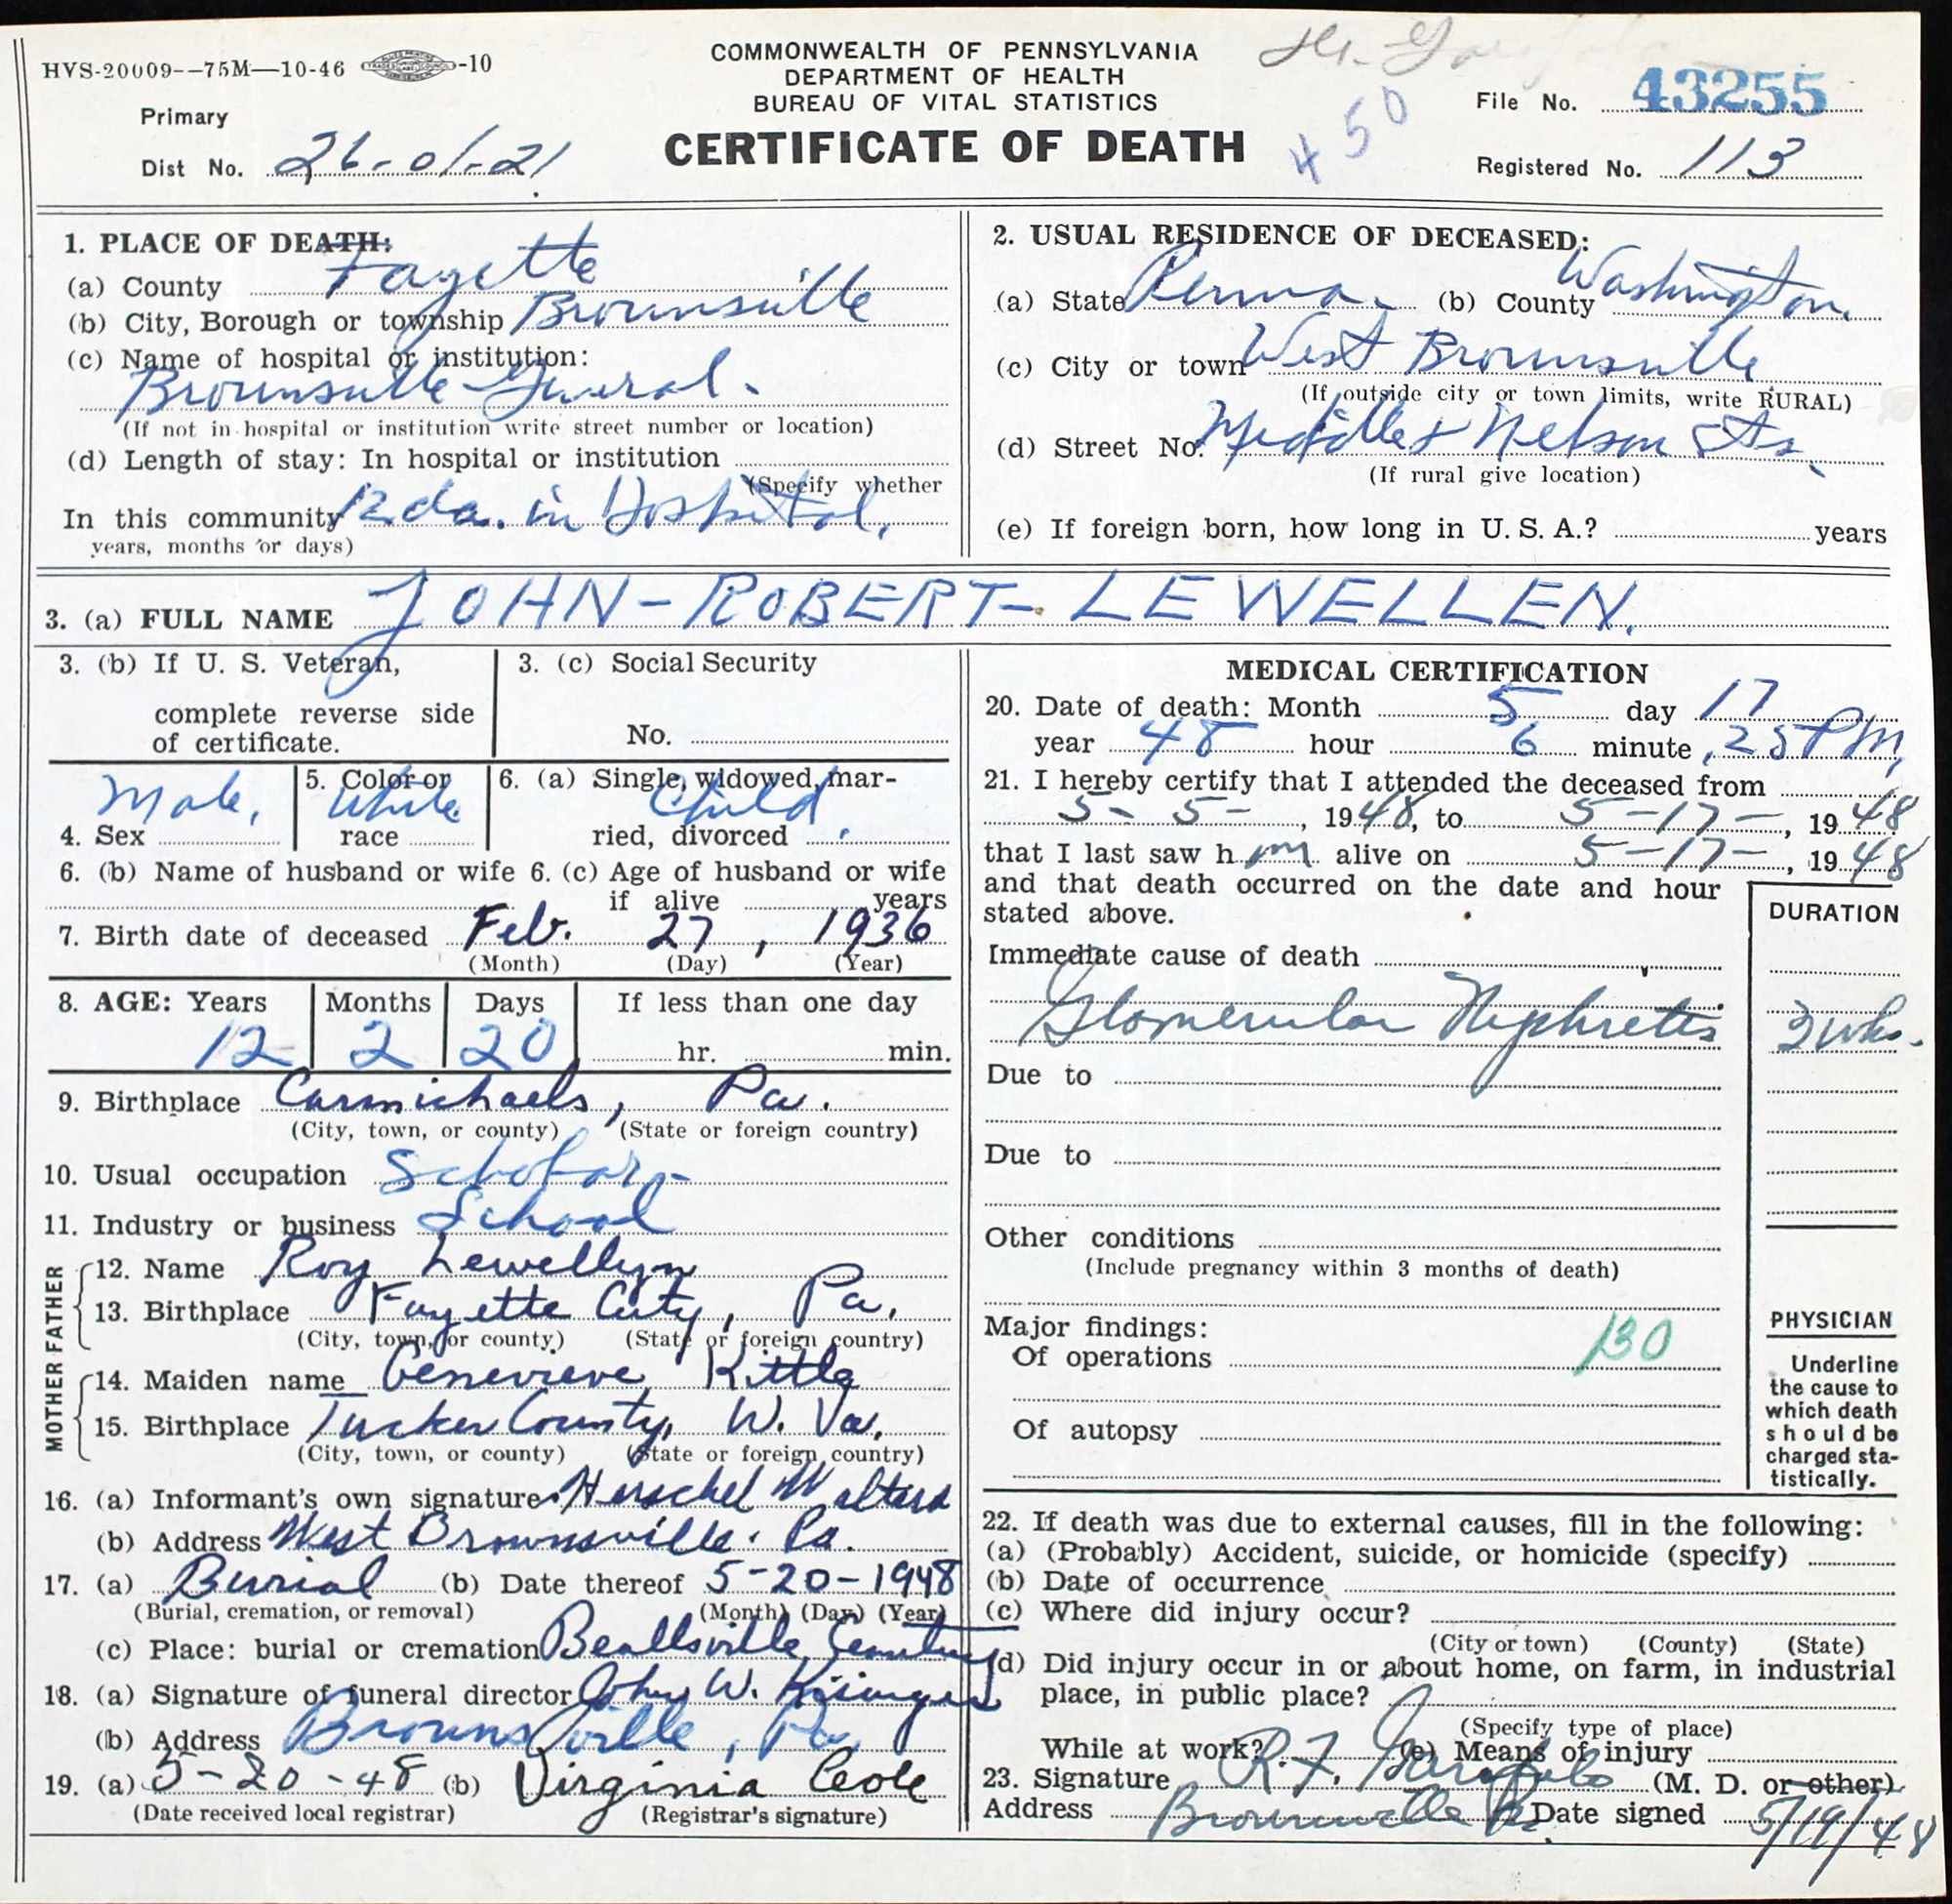 HVS-20009--75M—10-46 -10
COMMONWEALTH OF PENNSYLVANIA
DEPARTMENT OF HEALTH
BUREAU OF VITAL STATISTICS
CERTIFICATE OF DEATH
450
File No. 43255
Registered No. 113
Primary
Dist No. 26-01-21
1. PLACE OF DEATH:
(a) County Fayette
(b) City, Borough or township Brownsville
(c) Name of hospital or institution:
Brownsville General.
(If not in hospital or institution write street number or location)
(d) Length of stay: In hospital or institution
(Specify whether
In this community 12 da. in Hospital.
years, months or days)
2. USUAL RESIDENCE OF DECEASED:
(a) State Penna. (b) County Washington.
(c) City or town West Brownsville
(If outside city or town limits, write RURAL)
(d) Street No. Middle & Nelson Sts.
(If rural give location)
(e) If foreign born, how long in U. S. A.? years
3. (a) FULL NAME JOHN-ROBERT-LEWELLEN.
3. (b) If U. S. Veteran,
complete reverse side
of certificate.
3. (c) Social Security
No.
4. Sex Male.
5. Color or
race White
6. (a) Single, widowed, mar-
ried, divorced Child.
6. (b) Name of husband or wife 6. (c) Age of husband or wife
if alive years
7. Birth date of deceased Feb. 27, 1936
(Month) (Day) (Year)
8. AGE: Years Months Days If less than one day
12 2 20 hr. min.
9. Birthplace Carmichaels, Pa.
(City, town, or county) (State or foreign country)
10. Usual occupation Scholar-
11. Industry or business School
FATHER
12. Name Roy Lewellyn
13. Birthplace Fayette City, Pa.
(City, town, or county) (State or foreign country)
MOTHER
14. Maiden name Genevieve Kittle
15. Birthplace Tucker County, W. Va.
(City, town, or county) (State or foreign country)
16. (a) Informant's own signature Herschel Walters
(b) Address West Brownsville. Pa.
17. (a) Burial (b) Date thereof 5-20-1948
(Burial, cremation, or removal) (Month) (Day) (Year)
(c) Place: burial or cremation Beallsville Cemetery
18. (a) Signature of funeral director John W.
(b) Address Brownsville, Pa
19. (a) 5-20-48 (b) Virginia Cole
(Date received local registrar) (Registrar's signature)
MEDICAL CERTIFICATION
20. Date of death: Month 5 day 17
year 48 hour 6 minute 25 PM,
21. I hereby certify that I attended the deceased from
5-5-, 1948, to 5-17-, 1948
that I last saw him alive on 5-17-, 1948
and that death occurred on the date and hour
stated above.
DURATION
Immediate cause of death
Glomerular Nephretis
wks.
Due to
Due to
Other conditions
(Include pregnancy within 3 months of death)
Major findings:
Of operations 130
Of autopsy
PHYSICIAN
Underline
the cause to
which death
should be
charged sta-
tistically.
22. If death was due to external causes, fill in the following:
(a) (Probably) Accident, suicide, or homicide (specify)
(b) Date of occurrence
(c) Where did injury occur?
(City or town) (County) (State)
(d) Did injury occur in or about home, on farm, in industrial
place, in public place?
(Specify type of place)
While at work? (e) Means of injury
23. Signature R. F. Garofolo (M. D. or other)
Address Brownsville Pa. Date signed 5/19/48